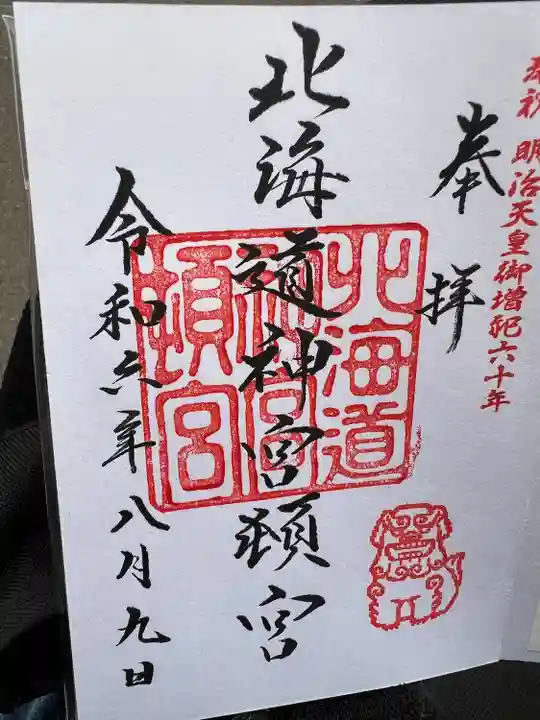 奉祝 明治天皇御増祀六十年
奉拝
北海道神宮頓宮
北海道
神宮
頓宮
令和六年八月九日